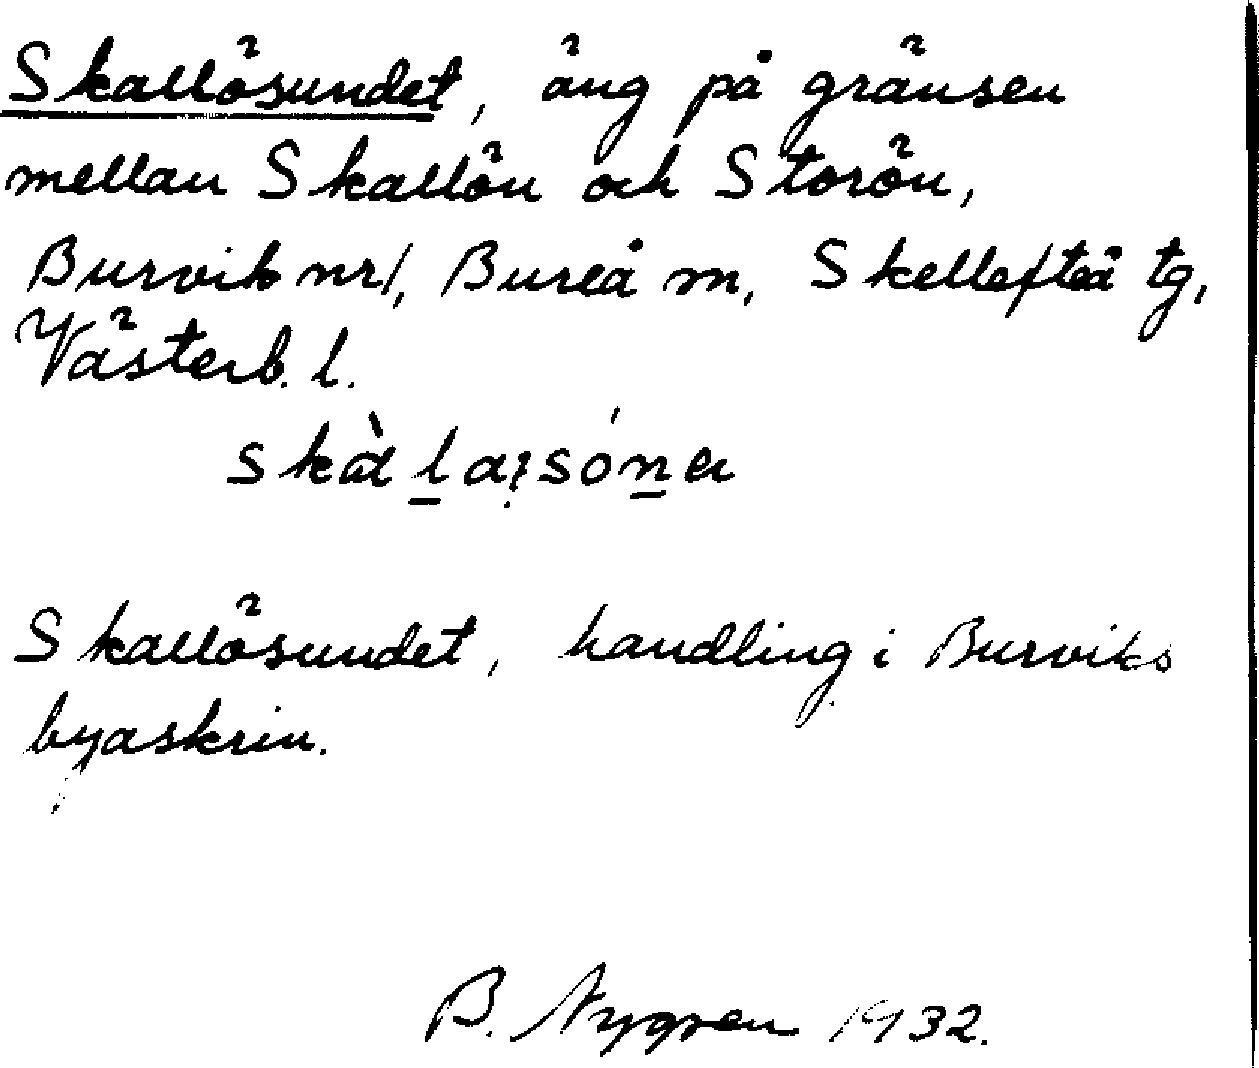 Skallösundet, äng på gränsen
mellan Skallön och Storön,
Burvik nr 1, Bureå m, Skellefteå tg,
Västerb. l.
Skallösundet, handling i Burviks
byaskrin.
B. Nygren 1932.